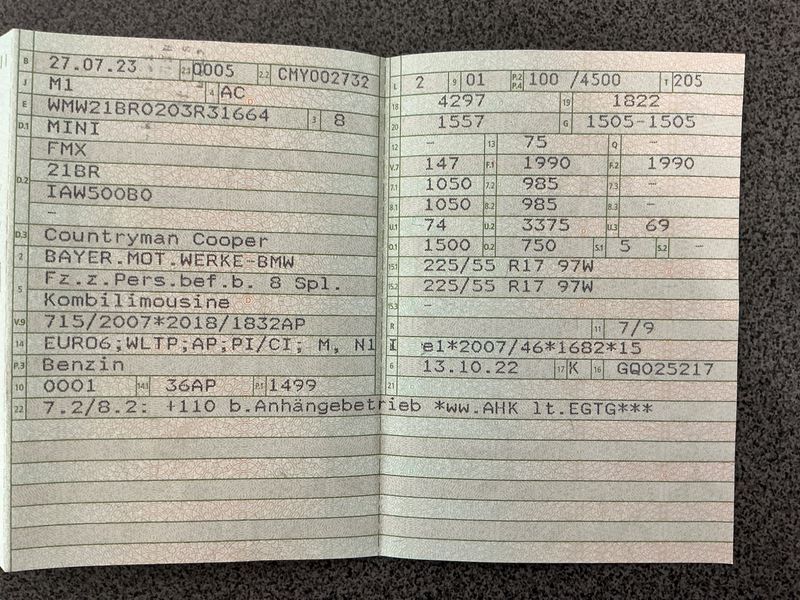 B 27.07.23 2.1 0005 2.2 CMY002732
J M1 4 AC
E WMW21BR0203R31664 3 8
D.1 MINI
FMX
D.2 21BR
IAW500B0
–
D.3 Countryman Cooper
2 BAYER.MOT.WERKE-BMW
5 Fz.z.Pers.bef.b. 8 Spl.
Kombilimousine
V.9 715/2007*2018/1832AP
14 EURO6;WLTP;AP;PI/CI; M, N1 I
P.3 Benzin
10 0001 14.1 36AP P.1 1499
22 7.2/8.2: +110 b.Anhängebetrieb *ww.AHK lt.EGTG***
L 2 9 01 P.2 P.4 100 /4500 T 205
18 4297 19 1822
20 1557 G 1505-1505
12 – 13 75 Q –
V.7 147 F.1 1990 F.2 1990
7.1 1050 7.2 985 7.3 –
8.1 1050 8.2 985 8.3 –
U.1 74 U.2 3375 U.3 69
O.1 1500 O.2 750 S.1 5 S.2 –
15.1 225/55 R17 97W
15.2 225/55 R17 97W
15.3 –
R 11 7/9
e1*2007/46*1682*15
6 13.10.22 17 K 16 GQ025217
21